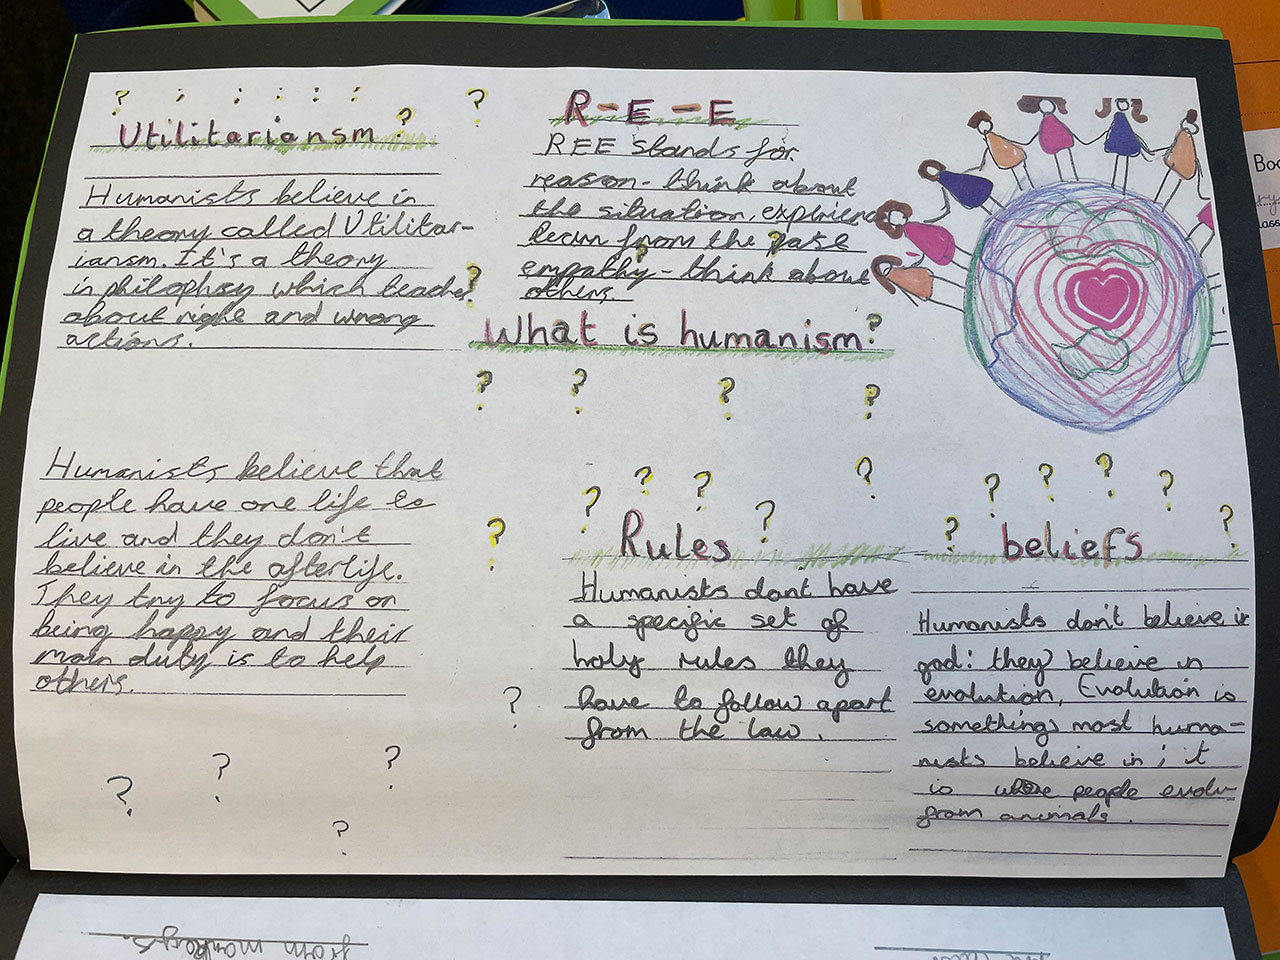 Utilitariansm
Humanists believe in
a theory called Utilitar-
iansm. It's a theory
in philophsy which teache
about right and wrong
actions.
R-E-E
REE stands for
reason - think about
the situation, exprienc
learn from the
empathy - think about
others.
What is humanism?
Humanists believe that
people have one life to
live and they don't
believe in the afterlife.
They try to focus on
being happy and their
main duty is to help
others.
Rules
Humanists dont have
a specific set of
holy rules they
have to follow apart
from the law.
beliefs
Humanists don't believe in
god: they believe in
evolution, Evolution is
something most huma-
nists believe in; it
is people evolv
from animals.
Boo
ass
from monkeys.